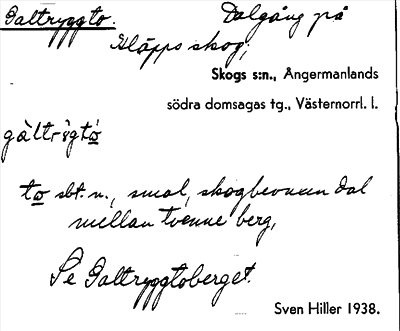 Galtryggto. Dalgång på
Kläpps skog;
Skogs s:n., Ångermanlands
södra domsagas tg., Västernorrl. l.
gàltrỳgtó̲
to̲ sbt. n., smal, skogbevuxen dal
mellan tvenne berg,
Se Galtryggtoberget.
Sven Hiller 1938.